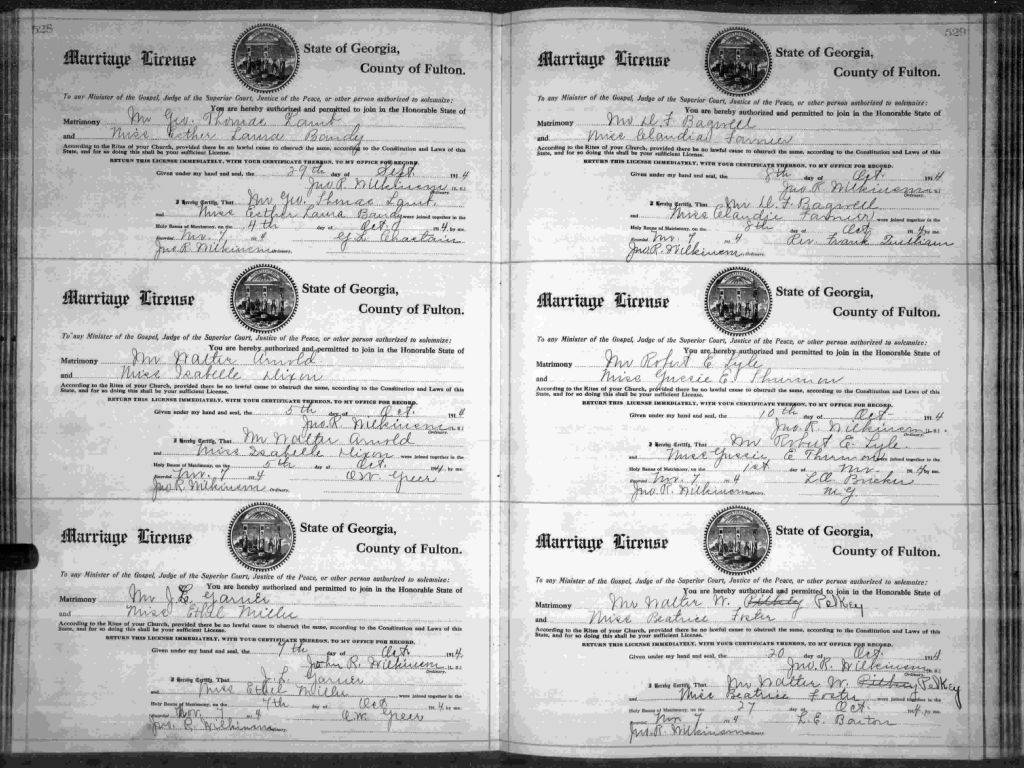 528
Marriage License
State of Georgia,
County of Fulton.
To any Minister of the Gospel, Judge of the Superior Court, Justice of the Peace, or other person authorized to solemnize:
You are hereby authorized and permitted to join in the Honorable State of
Matrimony Mr Geo. Thomas
and Miss Esther Laura Bandy
According to the Rites of your Church, provided there be no lawful cause to obstruct the same, according to the Constitution and Laws of this
State, and for so doing this shall be your sufficient License.
RETURN THIS LICENSE IMMEDIATELY, WITH YOUR CERTIFICATE THEREON, TO MY OFFICE FOR RECORD.
Given under my hand and seal, the 29th day of Sept 1914
Jno. R. Wilkinson (L. S.)
Ordinary.
I Hereby Certify, That Mr Geo. Thomas
and Miss Esther Laura Bandy were joined together in the
Holy Banns of Matrimony, on the 4th day of Oct 1914 by me.
Recorded Nov. 7 1914 Chastain
Jno R. Wilkinson Ordinary.
Marriage License
State of Georgia,
County of Fulton.
To any Minister of the Gospel, Judge of the Superior Court, Justice of the Peace, or other person authorized to solemnize:
You are hereby authorized and permitted to join in the Honorable State of
Matrimony Mr Walter Arnold
and Miss Isabelle Dixon
According to the Rites of your Church, provided there be no lawful cause to obstruct the same, according to the Constitution and Laws of this
State, and for so doing this shall be your sufficient License.
RETURN THIS LICENSE IMMEDIATELY, WITH YOUR CERTIFICATE THEREON, TO MY OFFICE FOR RECORD.
Given under my hand and seal, the 5th day of Oct. 1914
Jno. R. Wilkinson (L. S.)
Ordinary.
I Hereby Certify, That Mr Walter Arnold
and Miss Isabelle Dixon were joined together in the
Holy Banns of Matrimony, on the 5th day of Oct. 1914 by me.
Recorded Nov. 7 1914 O.W. Greer
Jno R. Wilkinson Ordinary.
Marriage License
State of Georgia,
County of Fulton.
To any Minister of the Gospel, Judge of the Superior Court, Justice of the Peace, or other person authorized to solemnize:
You are hereby authorized and permitted to join in the Honorable State of
Matrimony Mr J.L. Garner
and Miss Ethel Miller
According to the Rites of your Church, provided there be no lawful cause to obstruct the same, according to the Constitution and Laws of this
State, and for so doing this shall be your sufficient License.
RETURN THIS LICENSE IMMEDIATELY, WITH YOUR CERTIFICATE THEREON, TO MY OFFICE FOR RECORD.
Given under my hand and seal, the 7th day of Oct. 1914
John R. Wilkinson (L. S.)
Ordinary.
I Hereby Certify, That J.L. Garner
and Miss Ethel Miller were joined together in the
Holy Banns of Matrimony, on the 7th day of Oct 1914 by me.
Recorded Nov. 7 1914 O.W. Greer
Jno. R. Wilkinson Ordinary.
529
Marriage License
State of Georgia,
County of Fulton.
To any Minister of the Gospel, Judge of the Superior Court, Justice of the Peace, or other person authorized to solemnize:
You are hereby authorized and permitted to join in the Honorable State of
Matrimony Mr D. F. Bagwell
and Miss Claudia Farmer
According to the Rites of your Church, provided there be no lawful cause to obstruct the same, according to the Constitution and Laws of this
State, and for so doing this shall be your sufficient License.
RETURN THIS LICENSE IMMEDIATELY, WITH YOUR CERTIFICATE THEREON, TO MY OFFICE FOR RECORD.
Given under my hand and seal, the 8th day of Oct. 1914
Jno R. Wilkinson
Ordinary.
I Hereby Certify, That Mr D. F. Bagwell
and Miss Claudie Farmer were joined together in the
Holy Banns of Matrimony, on the 8th day of Oct 1914 by me.
Recorded Nov. 7 1914 Rev. Frank
Jno R. Wilkinson Ordinary.
Marriage License
State of Georgia,
County of Fulton.
To any Minister of the Gospel, Judge of the Superior Court, Justice of the Peace, or other person authorized to solemnize:
You are hereby authorized and permitted to join in the Honorable State of
Matrimony Mr Robert E. Lyle
and Miss Gussie E. Thurmon
According to the Rites of your Church, provided there be no lawful cause to obstruct the same, according to the Constitution and Laws of this
State, and for so doing this shall be your sufficient License.
RETURN THIS LICENSE IMMEDIATELY, WITH YOUR CERTIFICATE THEREON, TO MY OFFICE FOR RECORD.
Given under my hand and seal, the 10th day of Oct 1914
Jno. R. Wilkinson (L. S.)
Ordinary.
I Hereby Certify, That Mr Robert E. Lyle
and Miss Gussie E Thurmon were joined together in the
Holy Banns of Matrimony, on the 1st day of Nov. 1914 by me.
Recorded Nov. 7 1914
Jno. R. Wilkinson M.G.
Marriage License
State of Georgia,
County of Fulton.
To any Minister of the Gospel, Judge of the Superior Court, Justice of the Peace, or other person authorized to solemnize:
You are hereby authorized and permitted to join in the Honorable State of
Matrimony Mr Walter W. Pelkey
and Miss Beatrice Foster
According to the Rites of your Church, provided there be no lawful cause to obstruct the same, according to the Constitution and Laws of this
State, and for so doing this shall be your sufficient License.
RETURN THIS LICENSE IMMEDIATELY, WITH YOUR CERTIFICATE THEREON, TO MY OFFICE FOR RECORD.
Given under my hand and seal, the 20 day of Oct. 1914
Jno. R. Wilkinson (L. S.)
Ordinary.
I Hereby Certify, That Mr Walter W. Pelkey
and Miss Beatrice Foster were joined together in the
Holy Banns of Matrimony, on the 27 day of Oct. 1914 by me.
Recorded Nov. 7 1914 L. E. Barton
Jno. R. Wilkinson Ordinary.